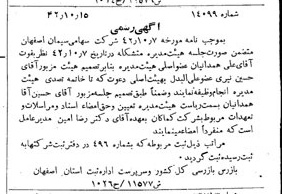 شماره ۱۴۰۹۹ ۴۲ر۱۰ر۱۵
آگهی رسمی
بموجب نامه مورخه ۴۲ر۱۰ر۷ شرکت سهامی سیمان اصفهان
متضمن صورت جلسه هیئت مدیره متشکله در تاریخ ۴۲ر۱۰ر۷ نظر بفوت
آقای علی همدانیان عضو اصلی هیئت مدیره بنابر تصمیم هیئت مزبور آقای
حسین نیری عضو علی البدل بهیئت اصلی دعوت که تا خاتمه تصدی هیئت
مدیره انجام وظیفه نمایند وضمناً طبق تصمیم جلسه مزبور آقای حسین آقا
همدانیان بسمت ریاست هیئت مدیره تعیین وحق امضاء اسناد ومراسلات و
تعهدات مربوط بشرکت کماکان بعهده آقای دکتر رضا امین مدیر عامل
است که منفرداً امضاء مینمایند
مراتب ذیل ثبت مربوطه که بشماره ۴۹۶ در دفتر ثبت شرکتها به
ثبت رسیده ثبت گردید.
بازرس بازرسی کل کشور وسرپرست اداره ثبت استان اصفهان
ش۱۱۵۷۷ /ح۱۰۲۶